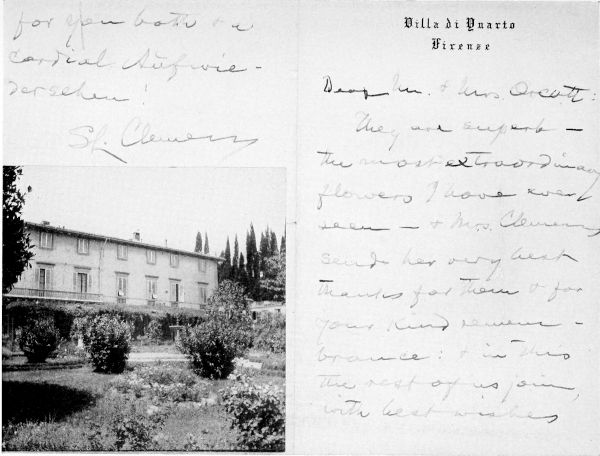 Villa di Quarto
Firenze
Dear Mr. & Mrs. Orcutt:
They are superb —
the most extraordinary
flowers I have ever
seen — & Mrs. Clemens
sends her very best
thanks for them & for
your kind remem-
brance: & in this
the rest of us join,
with best wishes
for you both & a
cordial Aufwie-
dersehen!
SL. Clemens